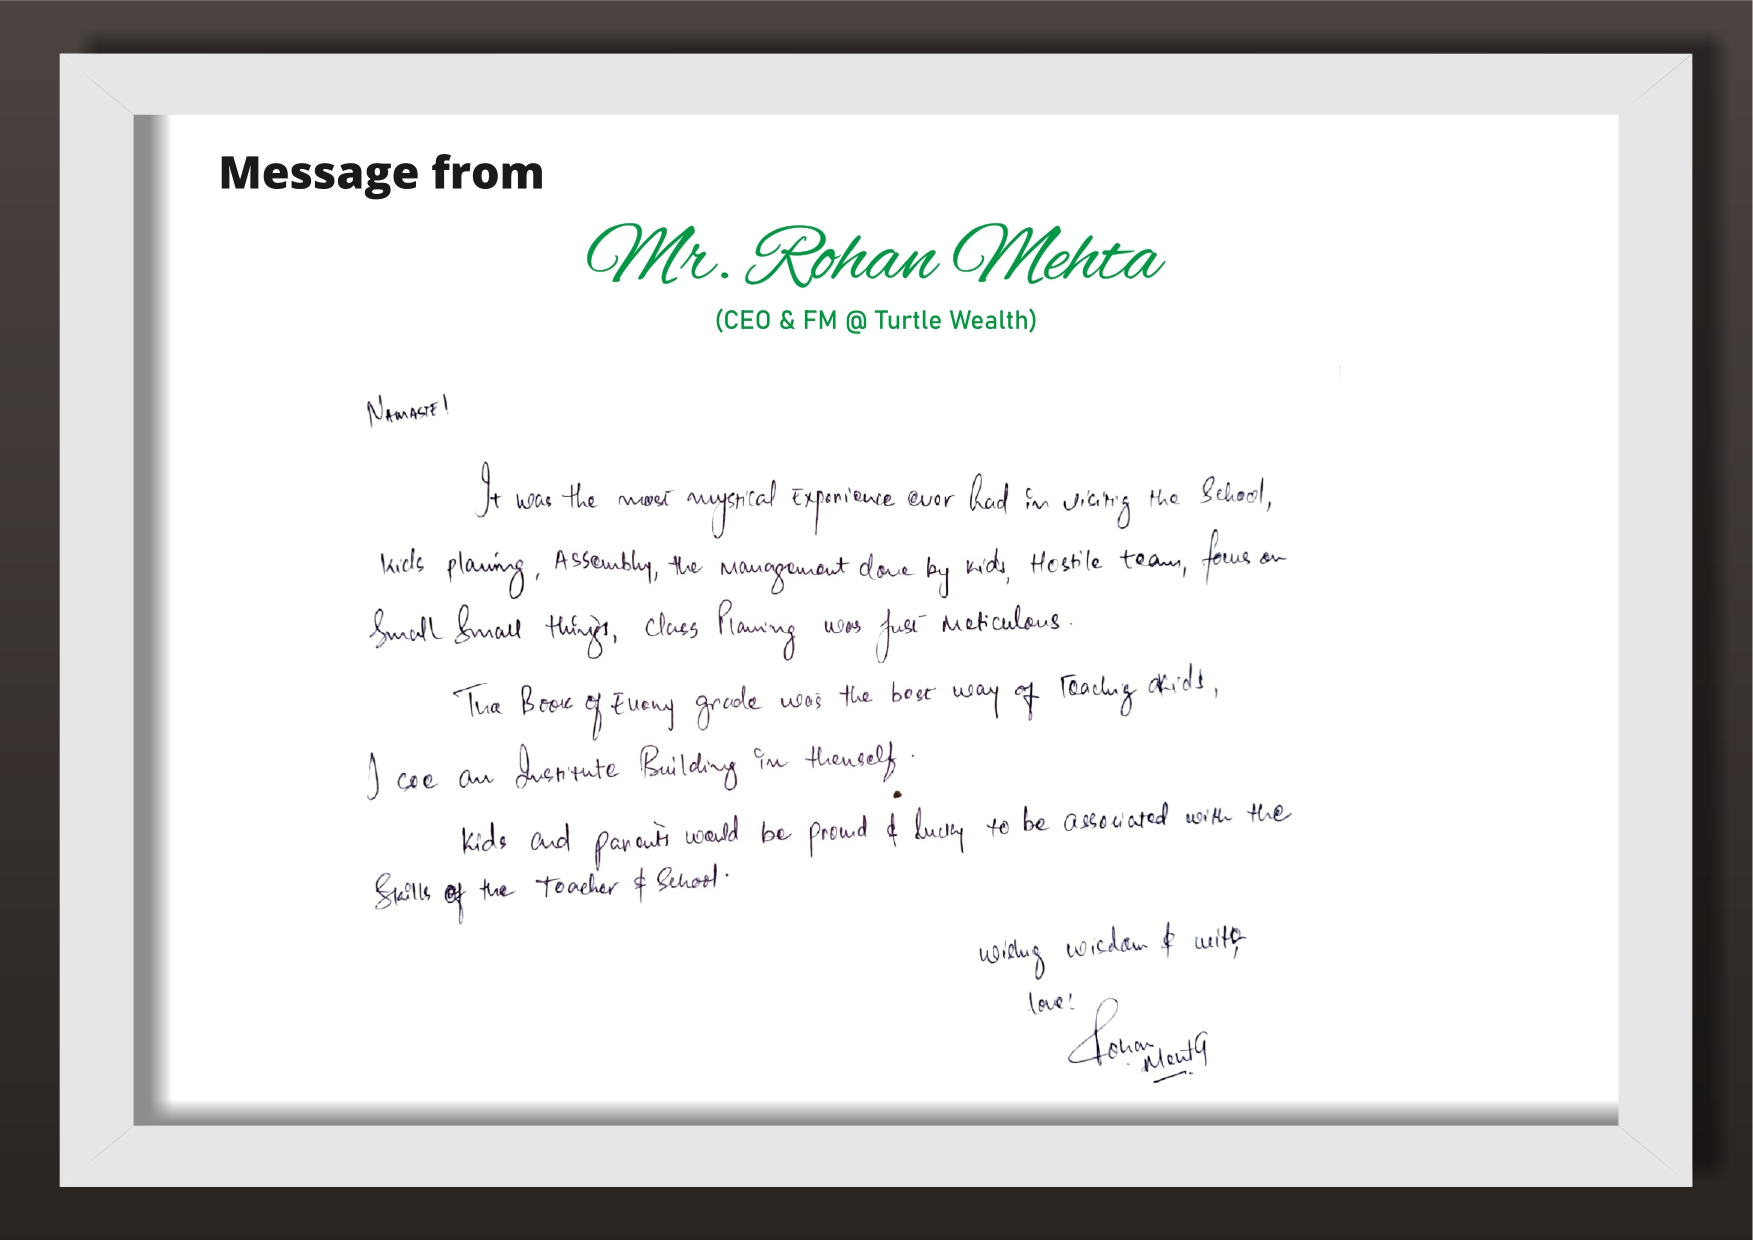 Message from
Mr. Rohan Mehta
(CEO & FM @ Turtle Wealth)
NAMASTE!
It was the most mystical Experience ever had in visiting the School,
kids planing, Assembly, the management done by kids, Hostile team, focus on
Small Small things, class Planing was just meticulous.
The Book of Every grade was the best way of Teaching kids,
I see an Institute Building in themself.
Kids and parents would be proud & lucky to be associated with the
Skills of the Teacher & School.
wishing wisdom & with
love!
Rohan
Mehta